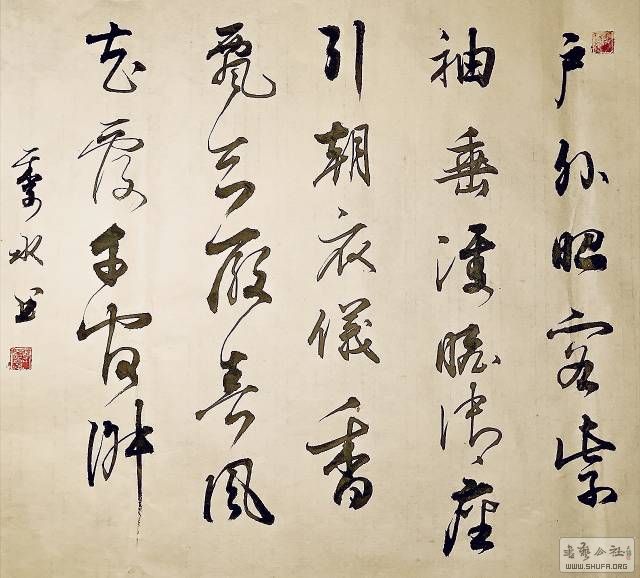 戶外昭容紫
袖垂雙瞻御座
引朝衣儀香
飄合殿春風
花覆千官淑
水書
書藝公社
WWW.SHUFA.ORG